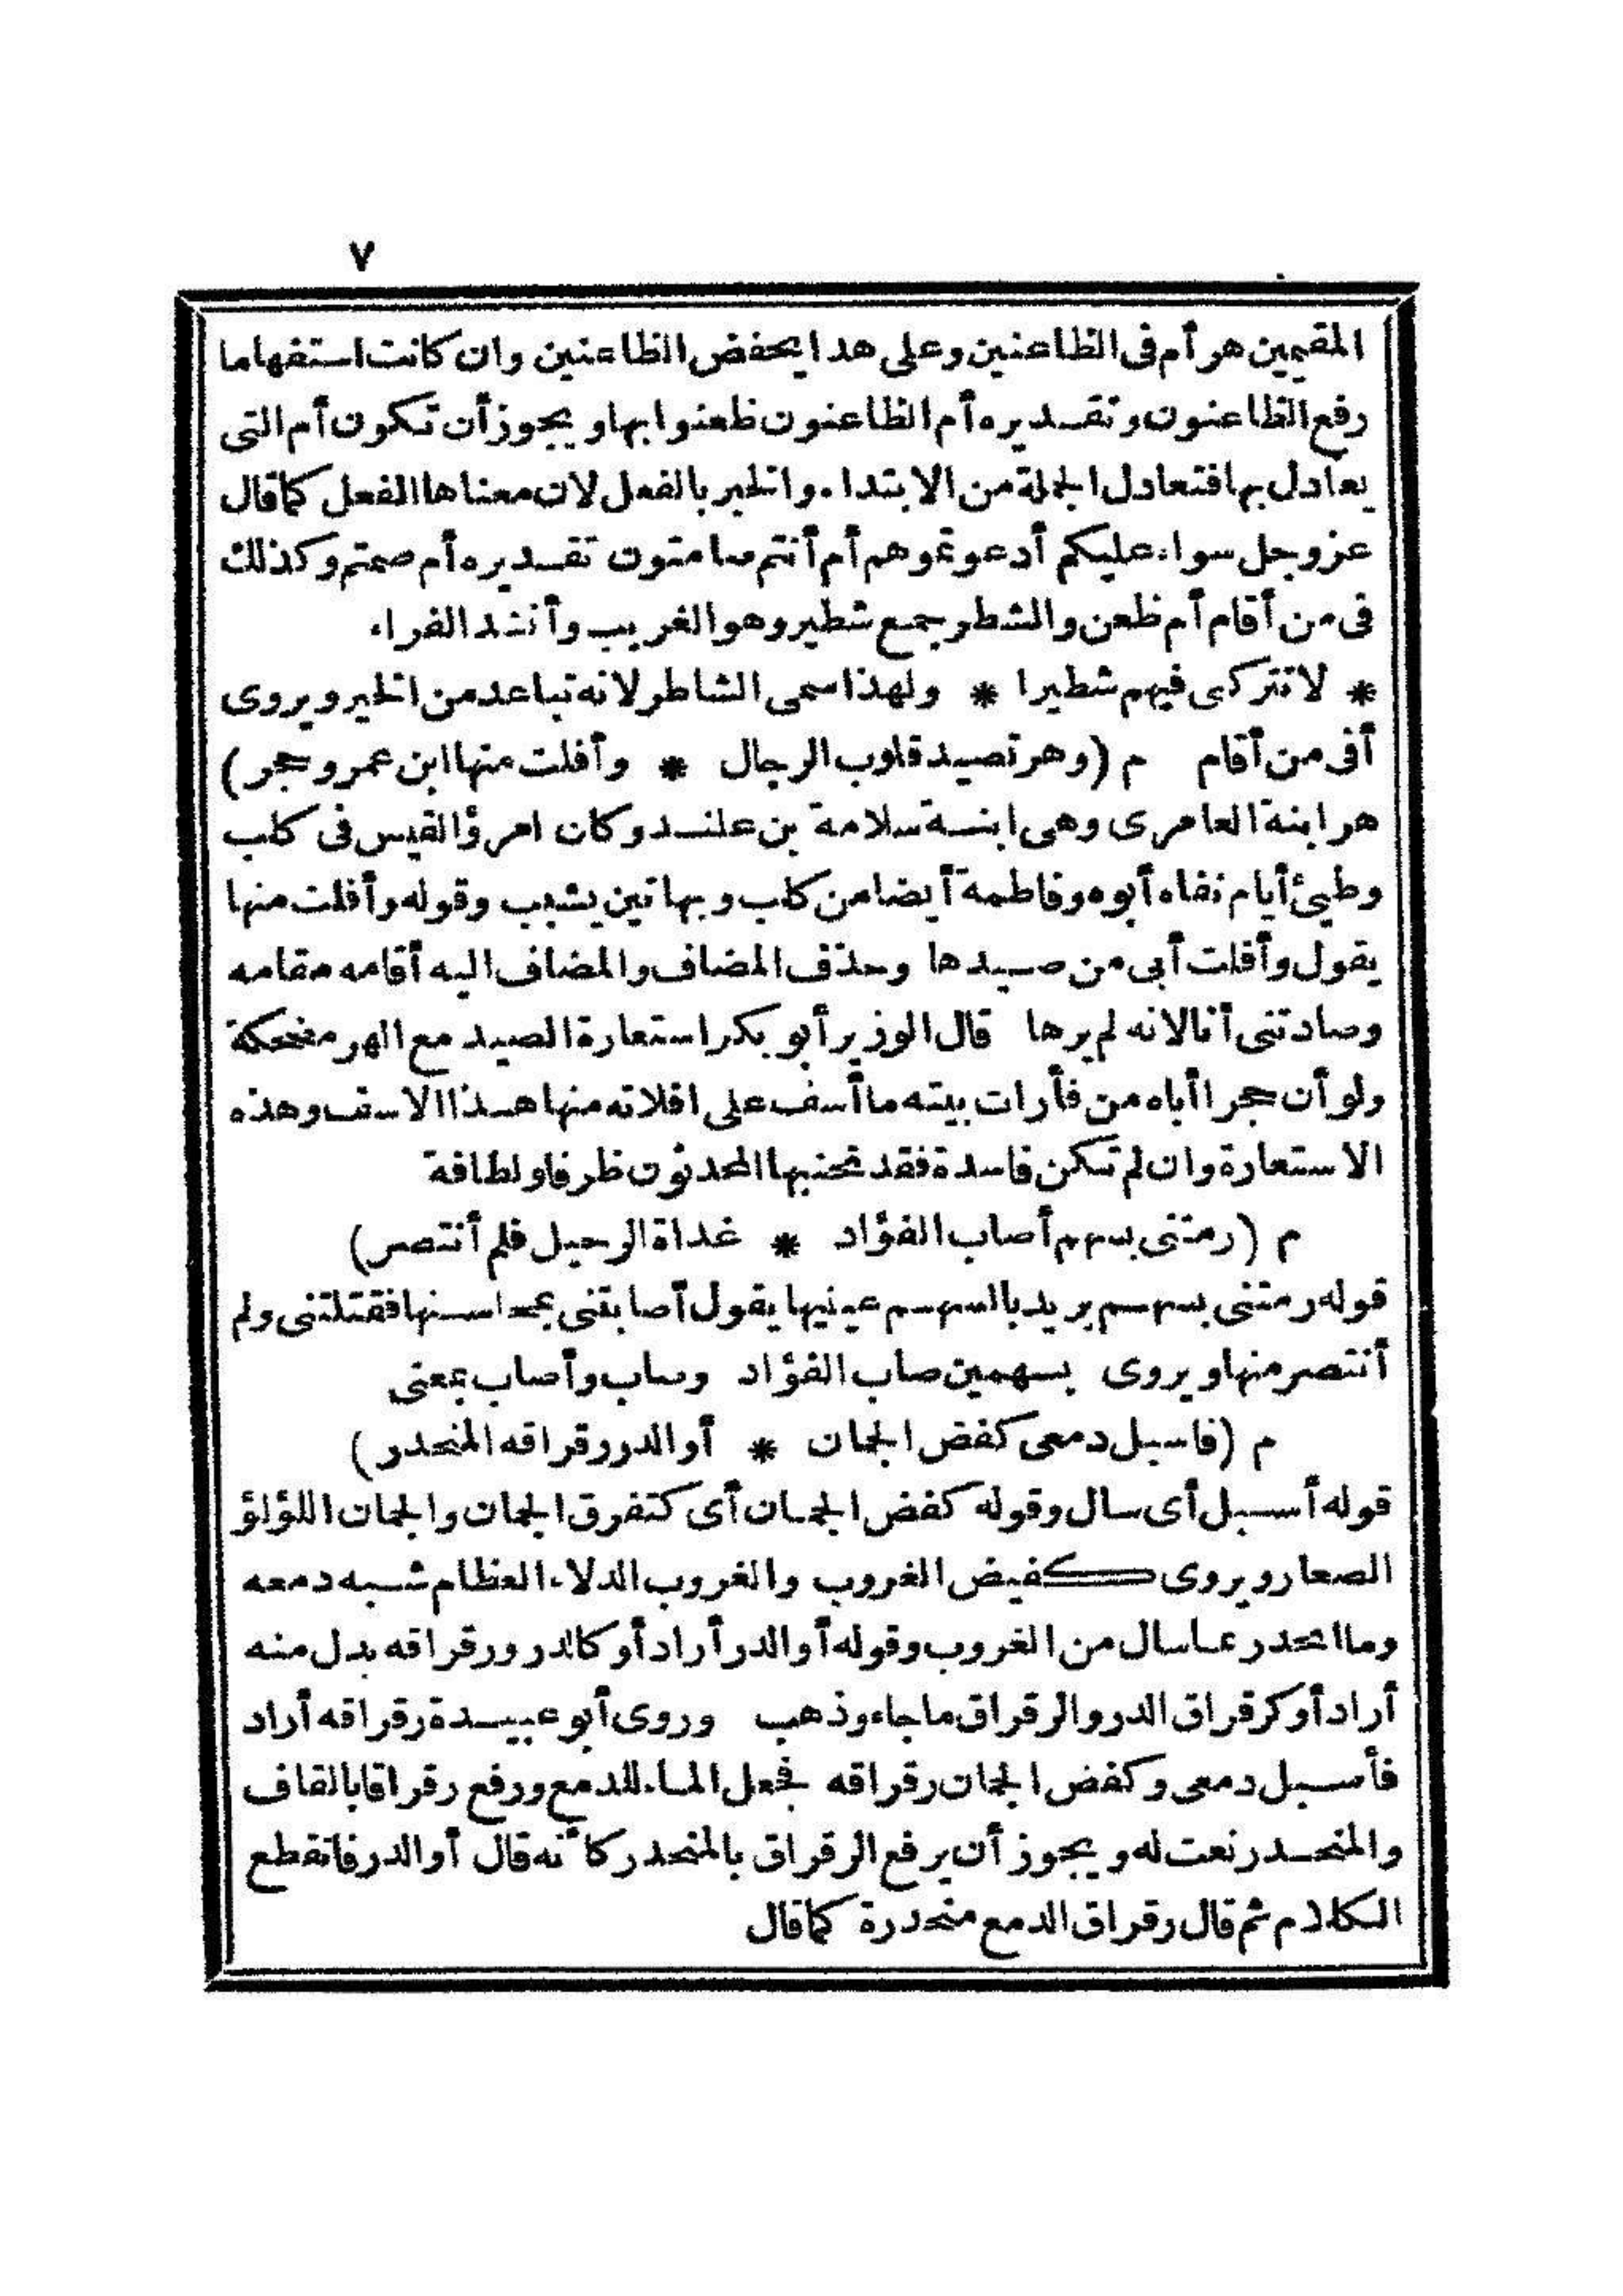 ٧
المقيمين هر أم فى الظاعنين وعلى هذا يخفض الظاعنين وان كانت استفهاما
رفع الظاعنون وتقديره أم الظاعنون ظعنوا بها ويجوز أن تكون أم التى
يعادل بها فتعادل الجملة من الابتداء والخبر بالفعل لان معناها الفعل كما قال
عز وجل سواء عليكم أدعوتموهم أم أنتم صامتون تقديره أم صمتم وكذلك
فى من أقام أم ظعن والشطر جمع شطير وهو الغريب وأنشد الفراء
* لا تتركى فيهم شطيرا * ولهذا سمى الشاطر لانه تباعد من الخير ويروى
أفى من أقام م (وهر تصيد قلوب الرجال * وأفلت منها ابن عمرو حجر)
هر ابنة العامرى وهى ابنة سلامة بن علند وكان امرؤ القيس فى كلب
وطيئ أيام نفاه أبوه وفاطمة أيضا من كلب وبهاتين يشبب وقوله وأفلت منها
يقول وأفلت أبى من صيدها وحذف المضاف والمضاف اليه أقامه مقامه
وصادتنى أنا لانه لم يرها قال الوزير أبو بكر استعارة الصيد مع الهر مضحكة
ولو أن حجرا أباه من فأرات بيته ما أسف على افلاته منها هذا الاسف وهذه
الاستعارة وان لم تكن فاسدة فقد تجنبها المحدثون ظرفا ولطافة
م (رمتنى بسهم أصاب الفؤاد * غداة الرحيل فلم أنتصر)
قوله رمتنى بسهم يريد بالسهم عينيها يقول أصابتنى بمحاسنها فقتلتنى ولم
أنتصر منها ويروى بسهمين صاب الفؤاد وصاب وأصاب بمعنى
م (فاسبل دمعى كفض الجمان * أو الدر رقراقه المنحدر)
قوله أسبل أى سال وقوله كفض الجمان أى كتفرق الجمان والجمان اللؤلؤ
الصعار ويروى كفيض الغروب والغروب الدلاء العظام شبه دمعه
وما انحدر بما سال من الغروب وقوله أو الدر أراد أو كالدر ورقراقه بدل منه
أراد أو كرقراق الدر والرقراق ما جاء وذهب وروى أبو عبيدة رقراقه أراد
فأسبل دمعى وكفض الجمان رقراقه فجعل الماء للدمع ورفع رقراقا بالقاف
والمنحدر نعت له ويجوز أن يرفع الرقراق بالمنحدر كأنه قال أو الدر فانقطع
الكلام ثم قال رقراق الدمع منحدرة كما قال